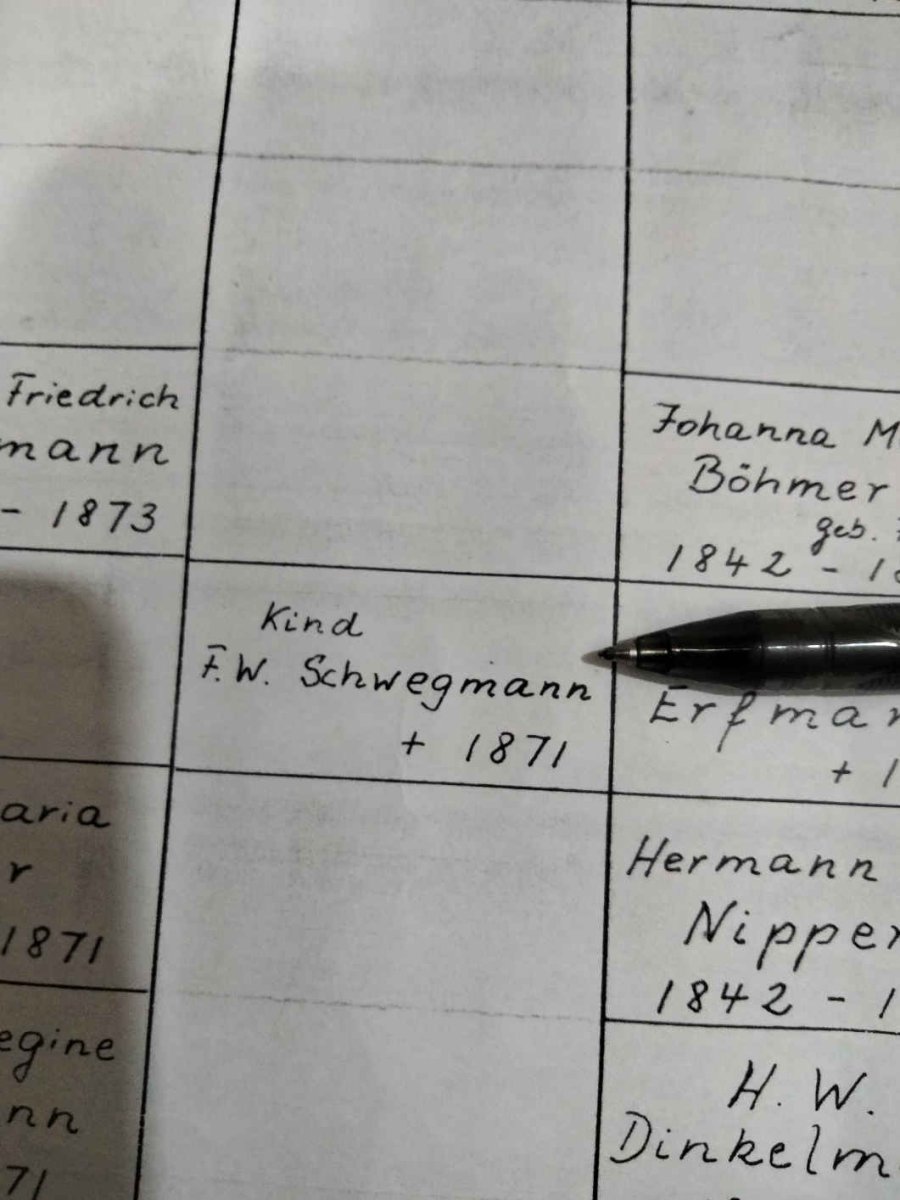 Friedrich
mann
- 1873
Johanna M
Böhmer
geb.
1842 - 18
Kind
F.W. Schwegmann
+ 1871
Erfman
+ 1
aria
r
1871
Hermann
Nipper
1842 - 1
egine
nn
71
H. W.
Dinkelm